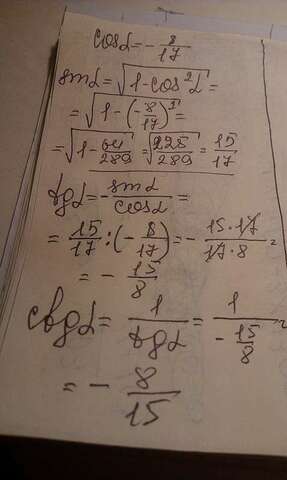 cosα = -8/17
sinα = √(1-cos²α) =
= √(1-(-8/17)²) =
= √(1-64/289) = √(225/289) = 15/17
tgα = -sinα/cosα =
= 15/17 : (-8/17) = -15·17/17·8 =
= -15/8
ctgα = 1/tgα = 1/(-15/8) =
= -8/15